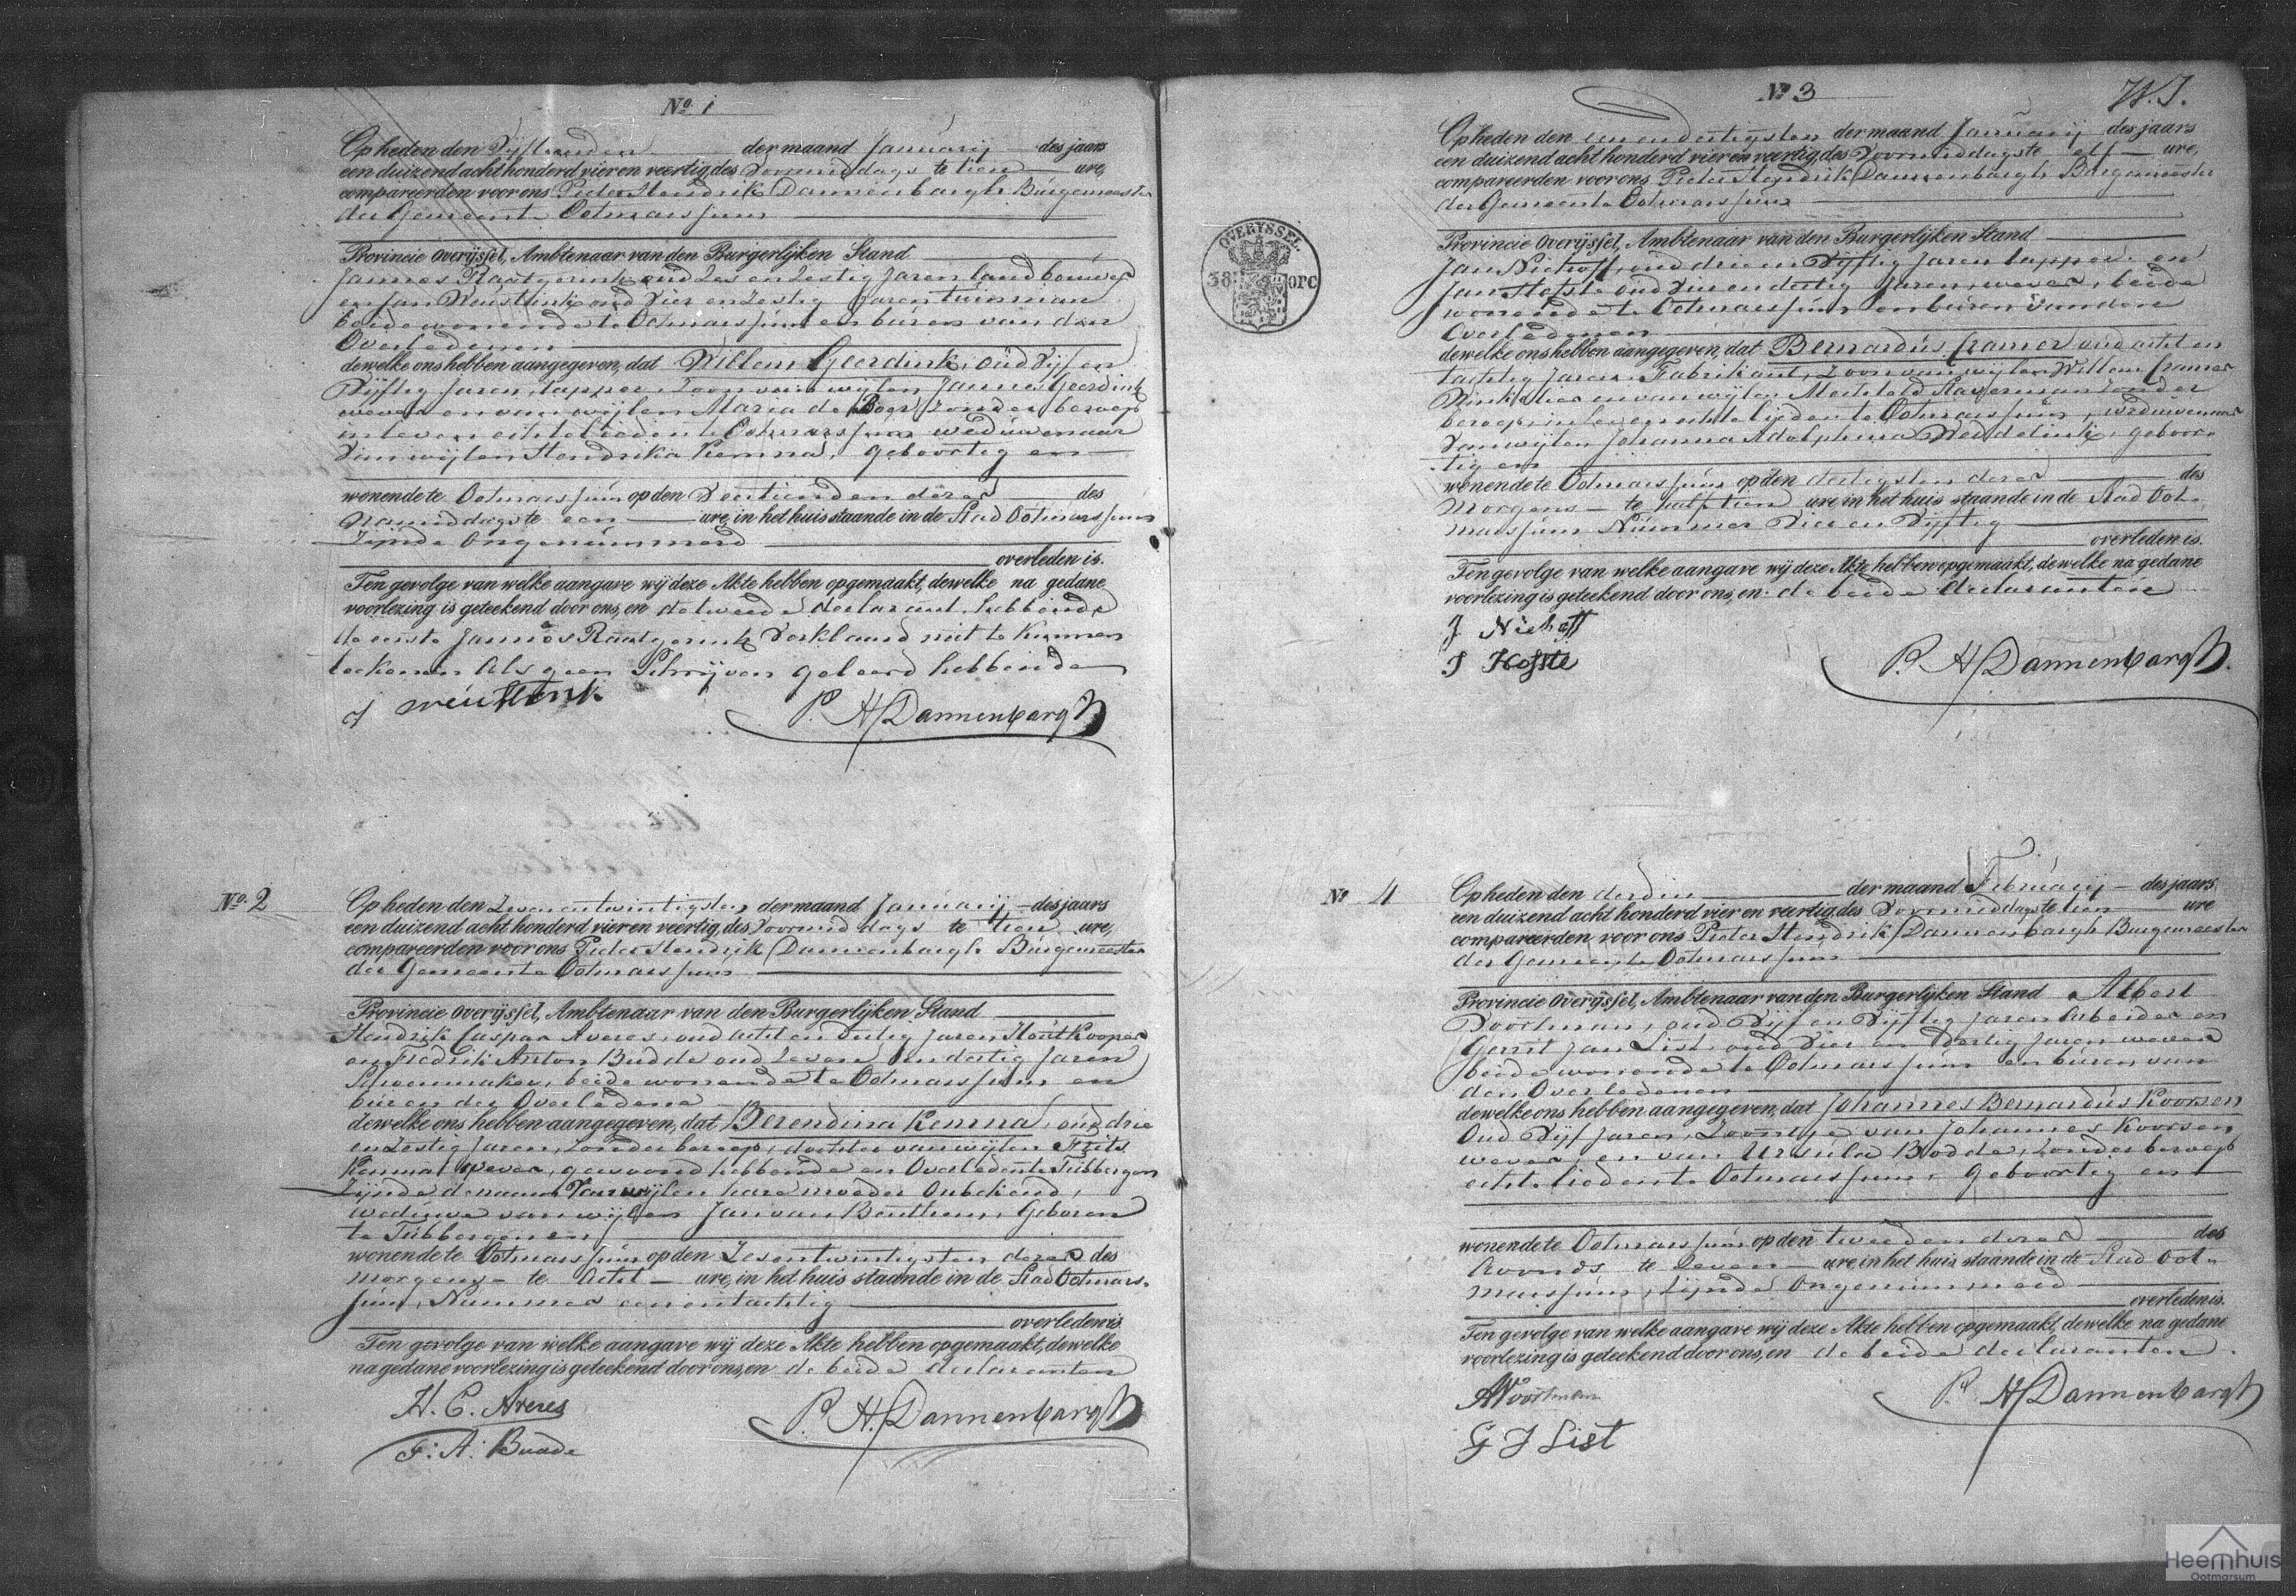 No. 1
Op heden den Vijftienden der maand Januarij des jaars
een duizend acht honderd vier en veertig, des Voormiddags te tien ure,
compareerden voor ons Pieter Hendrik Dannenbargh Burgemeester
der Gemeente Ootmarssum
Provincie Overijssel, Ambtenaar van den Burgerlijken Stand
Jannes Raatgerink oud Zes en Zestig Jaren landbouwer
en Jan Weustink oud Vier en Zestig Jaren tuinman
beide wonende te Ootmarssum en buren van den
Overledenen
dewelke ons hebben aangegeven, dat Willem Geerdink, oud Vijf en
Vijftig Jaren, tapper, Zoon van wijlen Jannes Geerdink
wever en van wijlen Maria de Boer, zonder beroep
in leven echtelieden te Ootmarssum weduwenaar
van wijlen Hendrika Kemna, geboortig en
wonende te Ootmarssum op den Veertienden dezer des
Namiddags te een ure, in het huis staande in de Stad Ootmarssum
Zijnde Ongenummerd
overleden is.
Ten gevolge van welke aangave wij deze Akte hebben opgemaakt, dewelke na gedane
voorlezing is geteekend door ons, en de tweede declarant hebbende
de eerste Jannes Raatgerink Verklaard niet te kunnen
teekenen als geen Schrijven geleerd hebbende
J Weustink P. H. Dannenbargh
No. 2
Op heden den Zevenentwintigsten der maand Januarij des jaars
een duizend acht honderd vier en veertig, des Voormiddags te tien ure,
compareerden voor ons Pieter Hendrik Dannenbargh Burgemeester
der Gemeente Ootmarssum
Provincie Overijssel, Ambtenaar van den Burgerlijken Stand
Hendrik Caspar Averes, oud acht en dertig Jaren, Houtkooper
en Fredrik Anton Budde oud Zeven en dertig Jaren
Schoenmaker, beide wonende te Ootmarssum en
buren der Overledene
dewelke ons hebben aangegeven, dat Berendina Kemna, oud drie
en Zestig Jaren, Zonder beroep, dochter van wijlen Frits
Kemna wever, gewoond hebbende en Overleden te Tubbergen
Zijnde de naam Van wijlen hare moeder Onbekend,
weduwe van wijlen Jan van Benthem, Geboren
te Tubbergen en
wonende te Ootmarssum op den Zeventwintigsten dezer des
morgens te Acht ure, in het huis staande in de Stad Ootmars-
sum, Nummer een en tachtig
overleden is
Ten gevolge van welke aangave wij deze Akte hebben opgemaakt, dewelke
na gedane voorlezing is geteekend door ons, en de beide declaranten
H. C. Averes P. H. Dannenbargh
F: A: Budde
No 3 W.J.
Op heden den eenendertigsten der maand Januarij des jaars
een duizend acht honderd vier en veertig, des Voormiddags te elf ure,
compareerden voor ons Pieter Hendrik Dannenbargh Burgemeester
der Gemeente Ootmarssum
OVERYSSEL.
38 opc
Provincie Overijssel, Ambtenaar van den Burgerlijken Stand
Jan Niehoff, oud drie en Vijftig Jaren tapper en
Jan Hofste oud Vier en dertig Jaren, wever, beide
wonende te Ootmarssum en buren van den
Overledenen
dewelke ons hebben aangegeven, dat Bernardus Cramer oud acht en
tachtig Jaren Fabrikant, Zoon van wijlen Willem Cramer
Winkelier en van wijlen Mechteld Haverman Zonder
beroep in Leven echtelieden te Ootmarssum, weduwenaar
van wijlen Johanna Adolphina Weddelink, geboor-
tig en
wonende te Ootmarssum op den dertigsten dezer des
Morgens te half tien ure, in het huis staande in de Stad Oot-
marssum Nummer Vier en Vijftig
overleden is.
Ten gevolge van welke aangave wij deze Akte hebben opgemaakt, dewelke na gedane
voorlezing is geteekend door ons, en de beide declaranten
J Niehoff
J Hofste P. H. Dannenbargh.
No 4
Op heden den derden der maand Februarij des jaars
een duizend acht honderd vier en veertig, des Voormiddags te tien ure
compareerden voor ons Pieter Hendrik Dannenbargh Burgemeester
der Gemeente Ootmarssum
Provincie Overijssel, Ambtenaar van den Burgerlijken Stand Albert
Voortman, oud Vijf en Vijftig Jaren Arbeider en
Gerrit Jan List, oud Vier en dertig Jaren wever
beide wonende te Ootmarssum en buren van
den Overledenen
dewelke ons hebben aangegeven, dat Johannes Bernardus Koorsen
Oud Vijf Jaren, Zoontje van Johannes Koorsen
wever, en van Ursula Bodde, Zonder beroep
echtelieden te Ootmarssum, geboortig en
wonende te Ootmarssum op den tweeden dezer des
Avonds te Zeven ure, in het huis staande in de Stad Oot-
marssum, Zijnde Ongenummerd
overleden is.
Ten gevolge van welke aangave wij deze Akte hebben opgemaakt, dewelke na gedane
voorlezing is geteekend door ons, en de beide declaranten.
A Voortman P. H. Dannenbargh
G J List
Heemhuis
Ootmarsum